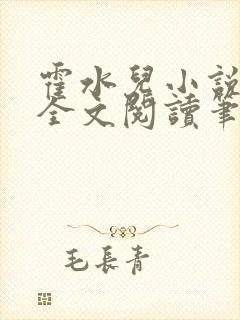 霍水兒小說
全文閱讀筆
毛長青